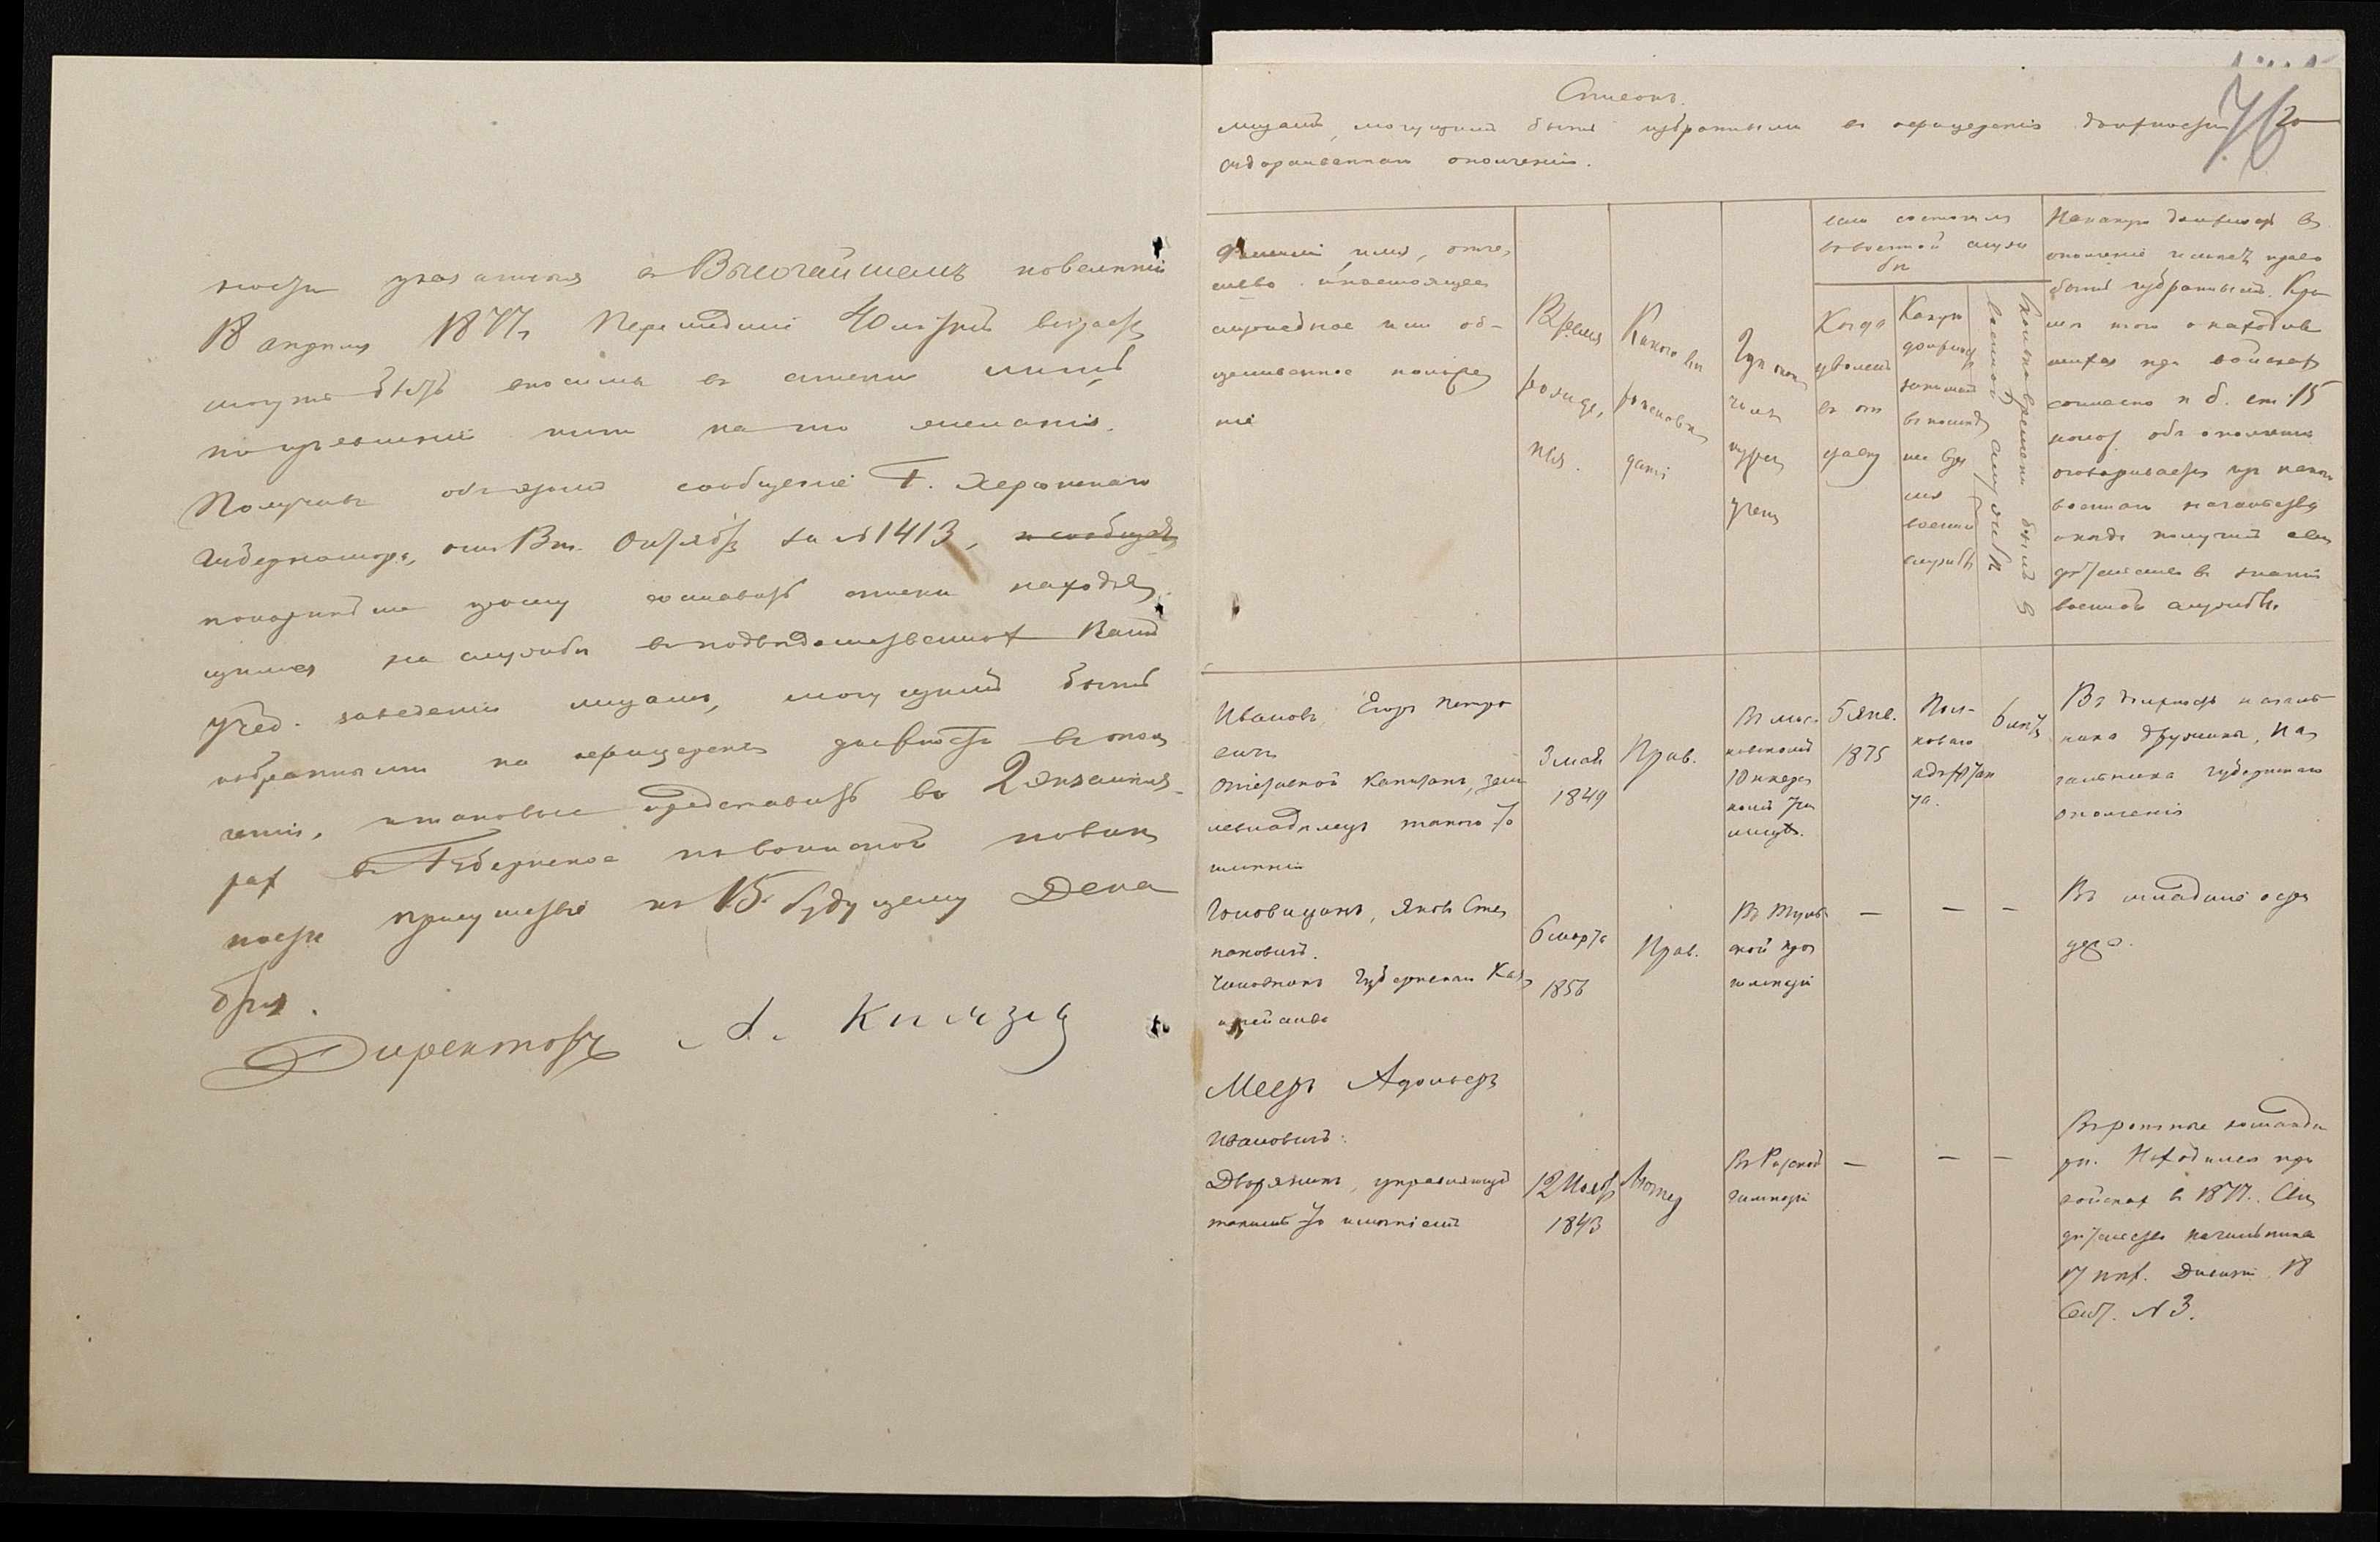 ности указанныя в Высочайшемъ повелении
18 апреля 1877г. Перешедшие 40 летний возрастъ
могутъ быть вносимы въ списки лишь
по изъявлении ими на то желанія.
Получивъ объ этомъ сообщение Г. Херсонскаго
Губернатора, отъ 13го Октября за № 1413, и сообщая
покорнейше прошу составить списки находя
щимся на службе въ подведомственныхъ Вамъ
учеб. заведении лицамъ, могущимъ быть
избранными на офицерскія должности въ опол
ченіи, каковые представить въ 2 экземпля
рахъ въ Губернское по воинской повин
ности присутствие къ 15 будущему Дека
бря.
Директоръ
Списокъ.
лицамъ, могущимъ быть избранными въ офицерскія должности
государственнаго ополченія.
76
Фамилія имя, отче
ство и настоящее
служебное или об-
щественное положе
ніе
Время
рожде
нія.
Какого ве
роисповѣ
данія
Гдѣ окон
чилъ
курсъ
Если состоялъ
въ военной служ
бе
Когда
уволенъ
въ от
ставку
Какую
должность
занималъ
въ послѣд
нее вре
мя
военной
службы
Сколько времени былъ в
военной службѣ
На какую должность в
ополчение имеетъ право
быть избраннымъ. Кро
ме того о находив
шихся при войскахъ
согласно п б. ст. 15
полож. объ ополчении
оговаривается отъ какого
военнаго начальства
и когда получилъ сви
детельство в знании
военной службы.
Ивановъ, Егоръ Петро
вичъ
Отставной Капитанъ, зем
левладелецъ такого то
имения
3 мая
1849
Прав.
Въ Мос-
ковскомъ
Юнкерс
комъ учи
лищѣ.
5 янв.
1875
Пол-
коваго
адъютан
та.
6 летъ
Въ должность началь
ника дружины, На
чальника губернскаго
ополченія
Головицынъ, Яковъ Сте
пановичъ.
Чиновникъ Губернскаго Каз
начейства
6 марта
1856
Прав.
Въ Туль
ской про
гимназіи
—
—
—
Въ младшие офи
церы.
Мееръ Адольфъ
Ивановичъ.
Дворянинъ, управляющий
такимъ то имениемъ
12 Нояб
1843
Лютер
Въ Рижской
гимназіи
—
—
—
Въ ротные команди
ры. Находился при
войскахъ в 1877г. Сви
детельство начальника
17 пех. Дивизии 18
Сент. № 3.